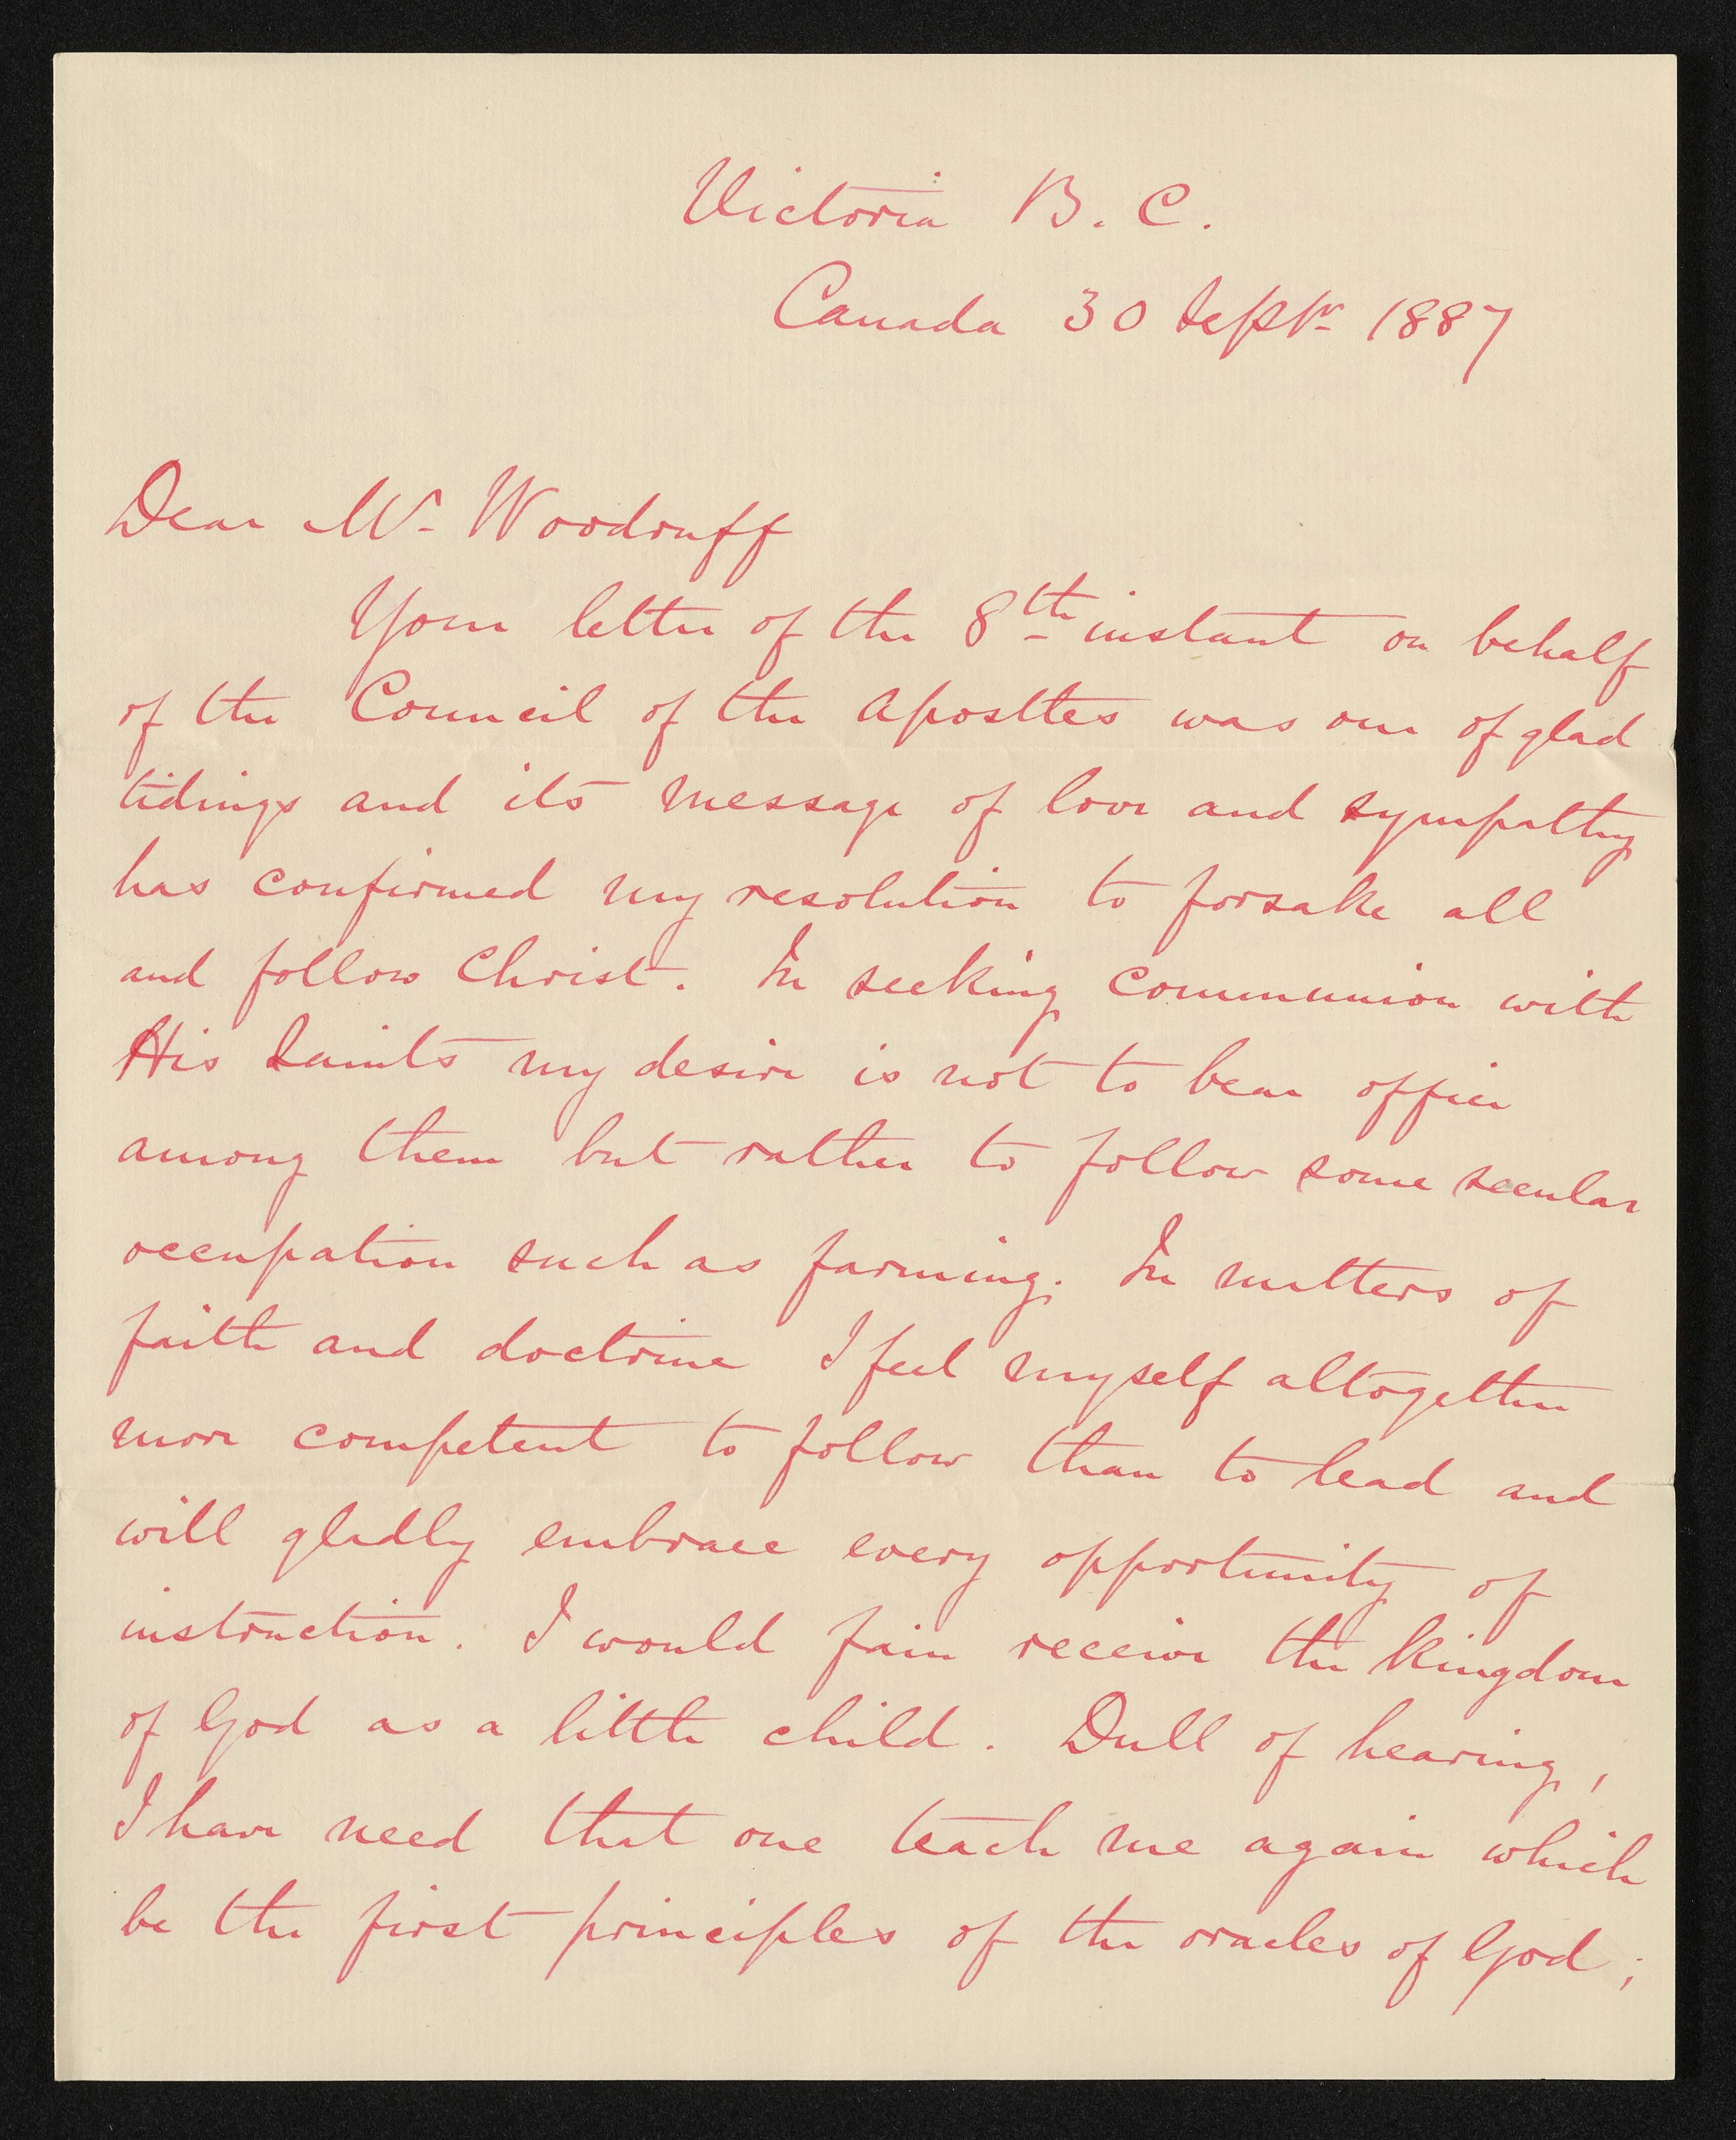 Victoria B. C.
Canada 30 Septr 1887
Dear Mr. Woodruff
Your letter of the 8th instant on behalf
of the Council of the Apostles was one of glad
tidings and its message of love and sympathy
has confirmed my resolution to forsake all
and follow Christ. In seeking communion with
His Saints my desire is not to bear office
among them but rather to follow some secular
occupation such as farming. In matters of
faith and doctrine I feel myself altogether
more competent to follow than to lead and
will gladly embrace every opportunity of
instruction. I would fain receive the Kingdom
of God as a little child. Dull of hearing,
I have need that one teach me again which
be the first principles of the oracles of God;